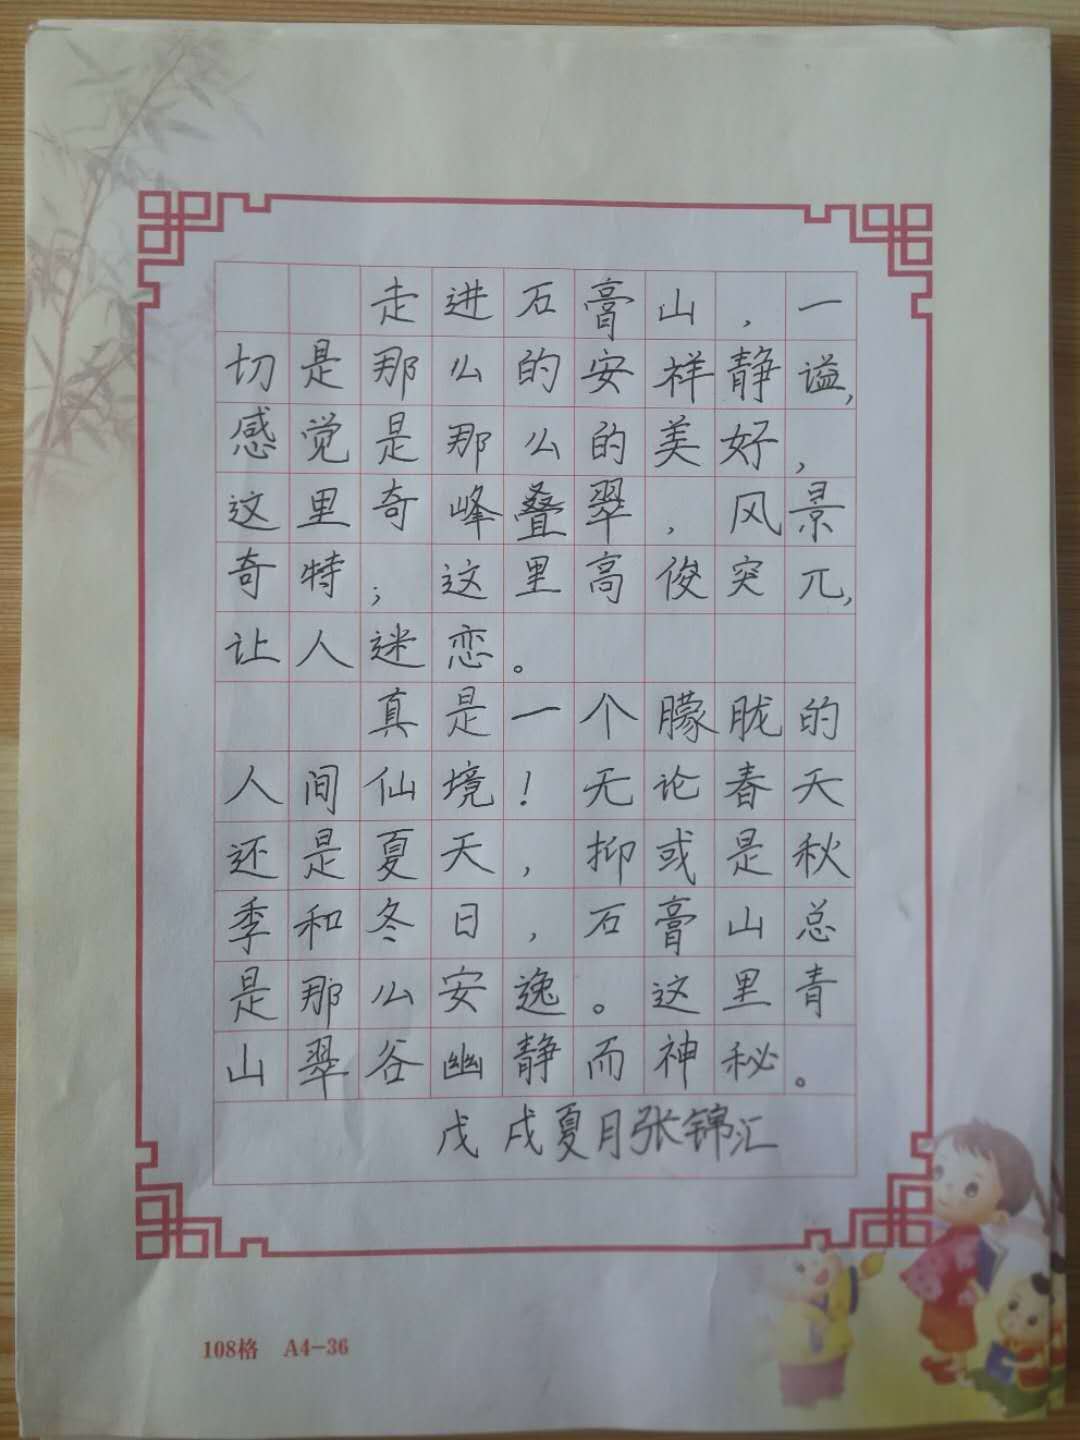 走进石膏山,一
切是那么的安祥静谧,
感觉是那么的美好,
这里奇峰叠翠,风景
奇特;这里高俊突兀,
让人迷恋。
真是一个朦胧的
人间仙境!无论春天
还是夏天,抑或是秋
季和冬日,石膏山总
是那么安逸。这里青
山翠谷幽静而神秘。
戊戌夏月张锦汇
108格 A4-36